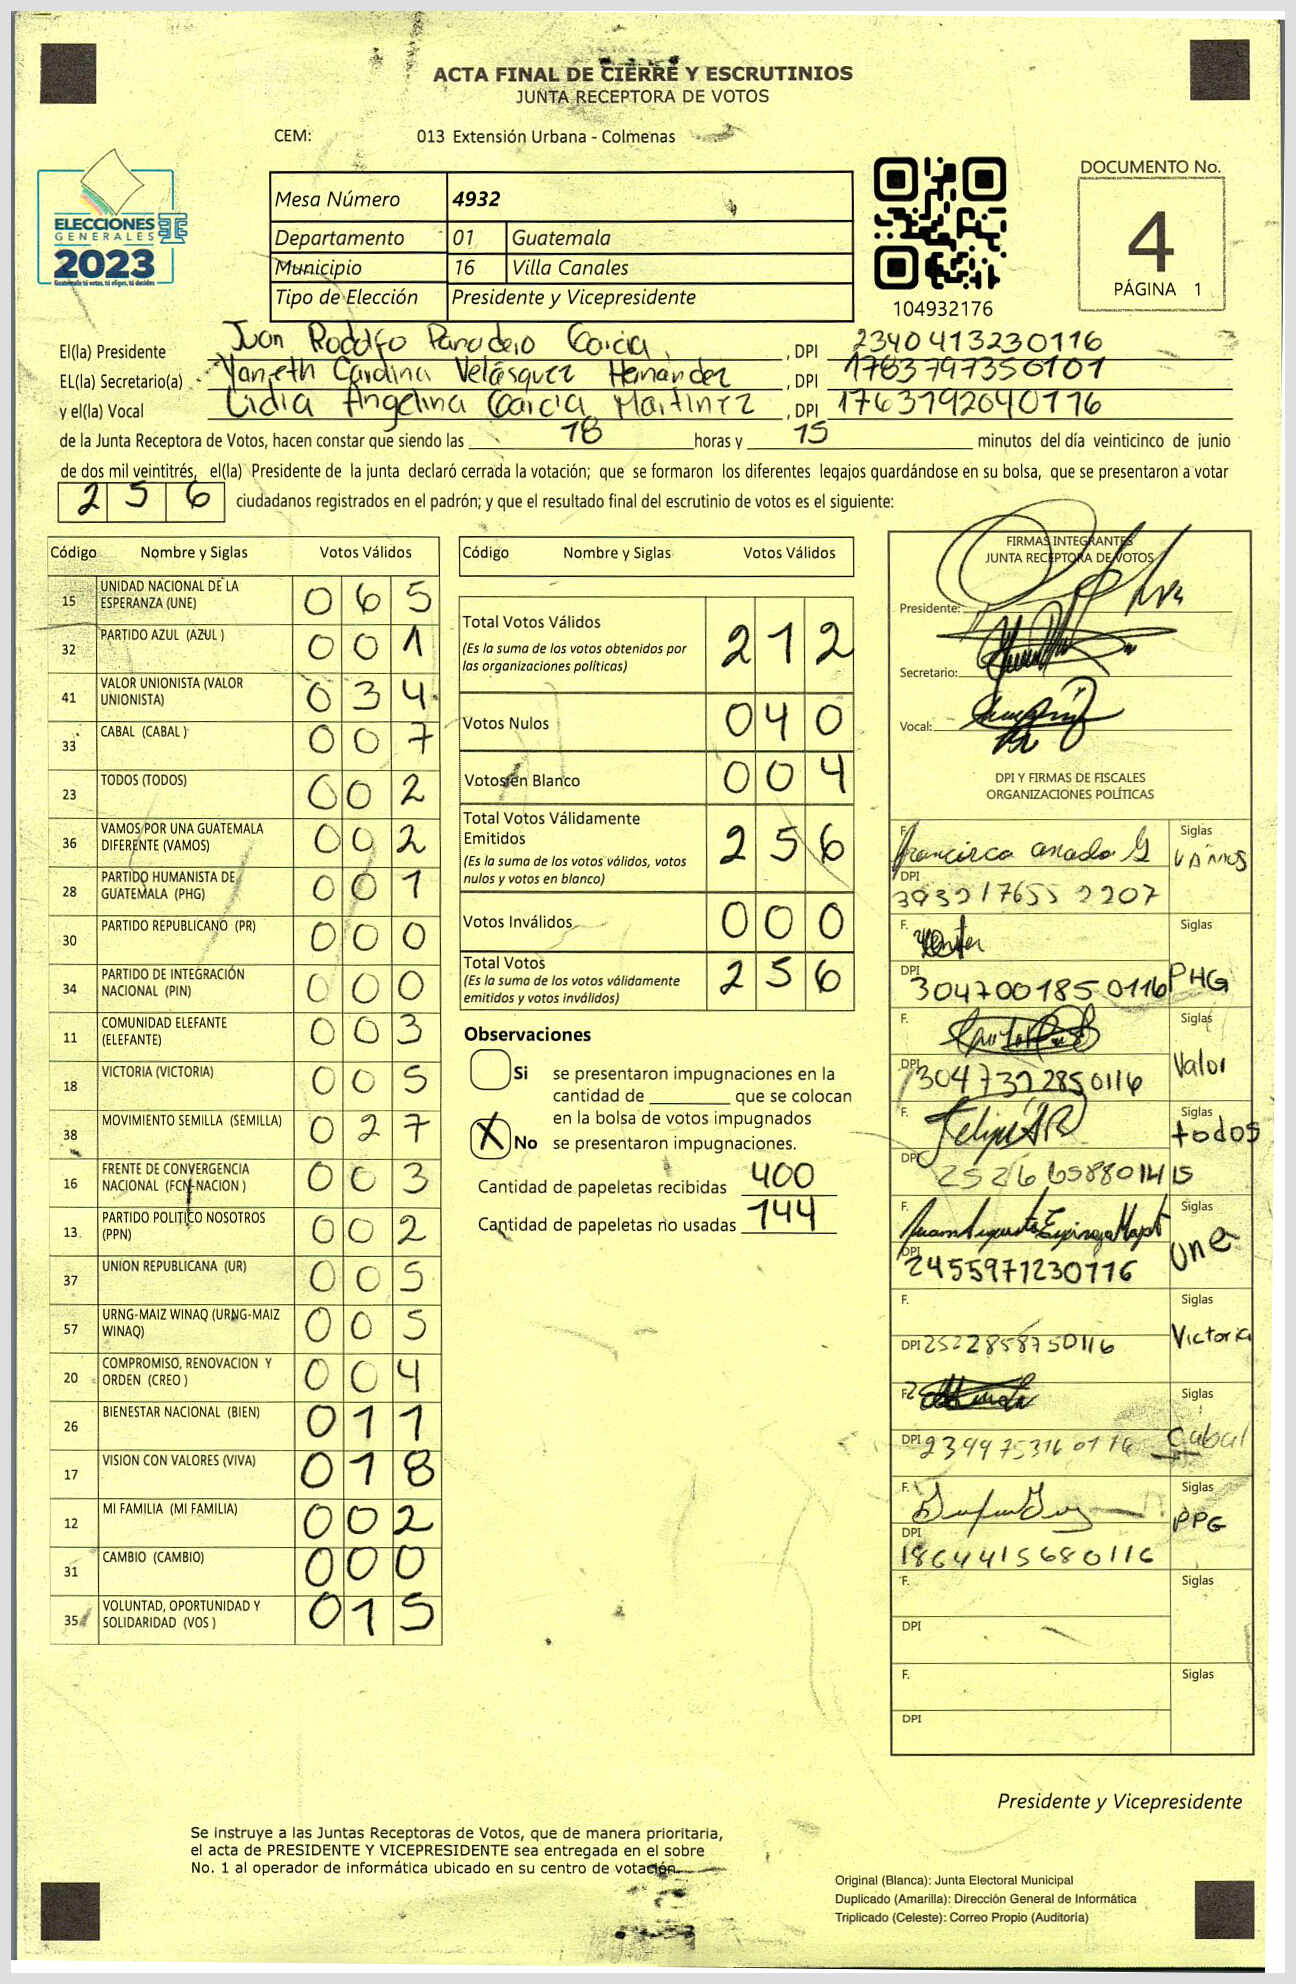 ACTA FINAL DE CIERRE Y ESCRUTINIOS
JUNTA RECEPTORA DE VOTOS
CEM: 013 Extensión Urbana - Colmenas
ELECCIONES
GENERALES
2023
Guatemala tú votas, tú eliges, tú decides
Mesa Número 4932
Departamento 01 Guatemala
Municipio 16 Villa Canales
Tipo de Elección Presidente y Vicepresidente
104932176
DOCUMENTO No.
4
PÁGINA 1
El(la) Presidente Juan Rodolfo Panadero Garcia, DPI 2340413230116
EL(la) Secretario(a) Yanjeth Carolina Velásquez Hernández, DPI 1783797350101
y el(la) Vocal Lidia Angelina Garcia Martinez, DPI 1763192040116
de la Junta Receptora de Votos, hacen constar que siendo las 18 horas y 15 minutos del día veinticinco de junio
de dos mil veintitrés, el(la) Presidente de la junta declaró cerrada la votación; que se formaron los diferentes legajos guardándose en su bolsa, que se presentaron a votar
256 ciudadanos registrados en el padrón; y que el resultado final del escrutinio de votos es el siguiente:
Código Nombre y Siglas Votos Válidos
15 UNIDAD NACIONAL DE LA ESPERANZA (UNE) 065
32 PARTIDO AZUL (AZUL ) 001
41 VALOR UNIONISTA (VALOR UNIONISTA) 034
33 CABAL (CABAL ) 007
23 TODOS (TODOS) 002
36 VAMOS POR UNA GUATEMALA DIFERENTE (VAMOS) 002
28 PARTIDO HUMANISTA DE GUATEMALA (PHG) 001
30 PARTIDO REPUBLICANO (PR) 000
34 PARTIDO DE INTEGRACIÓN NACIONAL (PIN) 000
11 COMUNIDAD ELEFANTE (ELEFANTE) 003
18 VICTORIA (VICTORIA) 005
38 MOVIMIENTO SEMILLA (SEMILLA) 027
16 FRENTE DE CONVERGENCIA NACIONAL (FCN-NACION ) 003
13 PARTIDO POLITICO NOSOTROS (PPN) 002
37 UNION REPUBLICANA (UR) 005
57 URNG-MAIZ WINAQ (URNG-MAIZ WINAQ) 005
20 COMPROMISO, RENOVACION Y ORDEN (CREO ) 004
26 BIENESTAR NACIONAL (BIEN) 011
17 VISION CON VALORES (VIVA) 018
12 MI FAMILIA (MI FAMILIA) 002
31 CAMBIO (CAMBIO) 000
35 VOLUNTAD, OPORTUNIDAD Y SOLIDARIDAD (VOS ) 015
Código Nombre y Siglas Votos Válidos
Total Votos Válidos 212
(Es la suma de los votos obtenidos por
las organizaciones políticas)
Votos Nulos 040
Votos en Blanco 004
Total Votos Válidamente Emitidos 256
(Es la suma de los votos válidos, votos
nulos y votos en blanco)
Votos Inválidos 000
Total Votos 256
(Es la suma de los votos válidamente
emitidos y votos inválidos)
Observaciones
Si se presentaron impugnaciones en la
cantidad de ________ que se colocan
en la bolsa de votos impugnados
X No se presentaron impugnaciones.
Cantidad de papeletas recibidas 400
Cantidad de papeletas no usadas 144
FIRMAS INTEGRANTES
JUNTA RECEPTORA DE VOTOS
Presidente:
Secretario:
Vocal:
DPI Y FIRMAS DE FISCALES
ORGANIZACIONES POLÍTICAS
F. Siglas VAMOS
DPI
F. Siglas PHG
DPI 3047001850116
F. Siglas Valor
DPI 3047322850116
F. Felipe Siglas todos
DPI
F. Siglas une
DPI 2455971230116
F. Siglas Victoria
DPI 2522858750116
F. Siglas Cabal
DPI 2399753160116
F. Siglas PPG
DPI 1864415680116
F. Siglas
DPI
F. Siglas
DPI
Presidente y Vicepresidente
Se instruye a las Juntas Receptoras de Votos, que de manera prioritaria,
el acta de PRESIDENTE Y VICEPRESIDENTE sea entregada en el sobre
No. 1 al operador de informática ubicado en su centro de votación.
Original (Blanca): Junta Electoral Municipal
Duplicado (Amarilla): Dirección General de Informática
Triplicado (Celeste): Correo Propio (Auditoría)